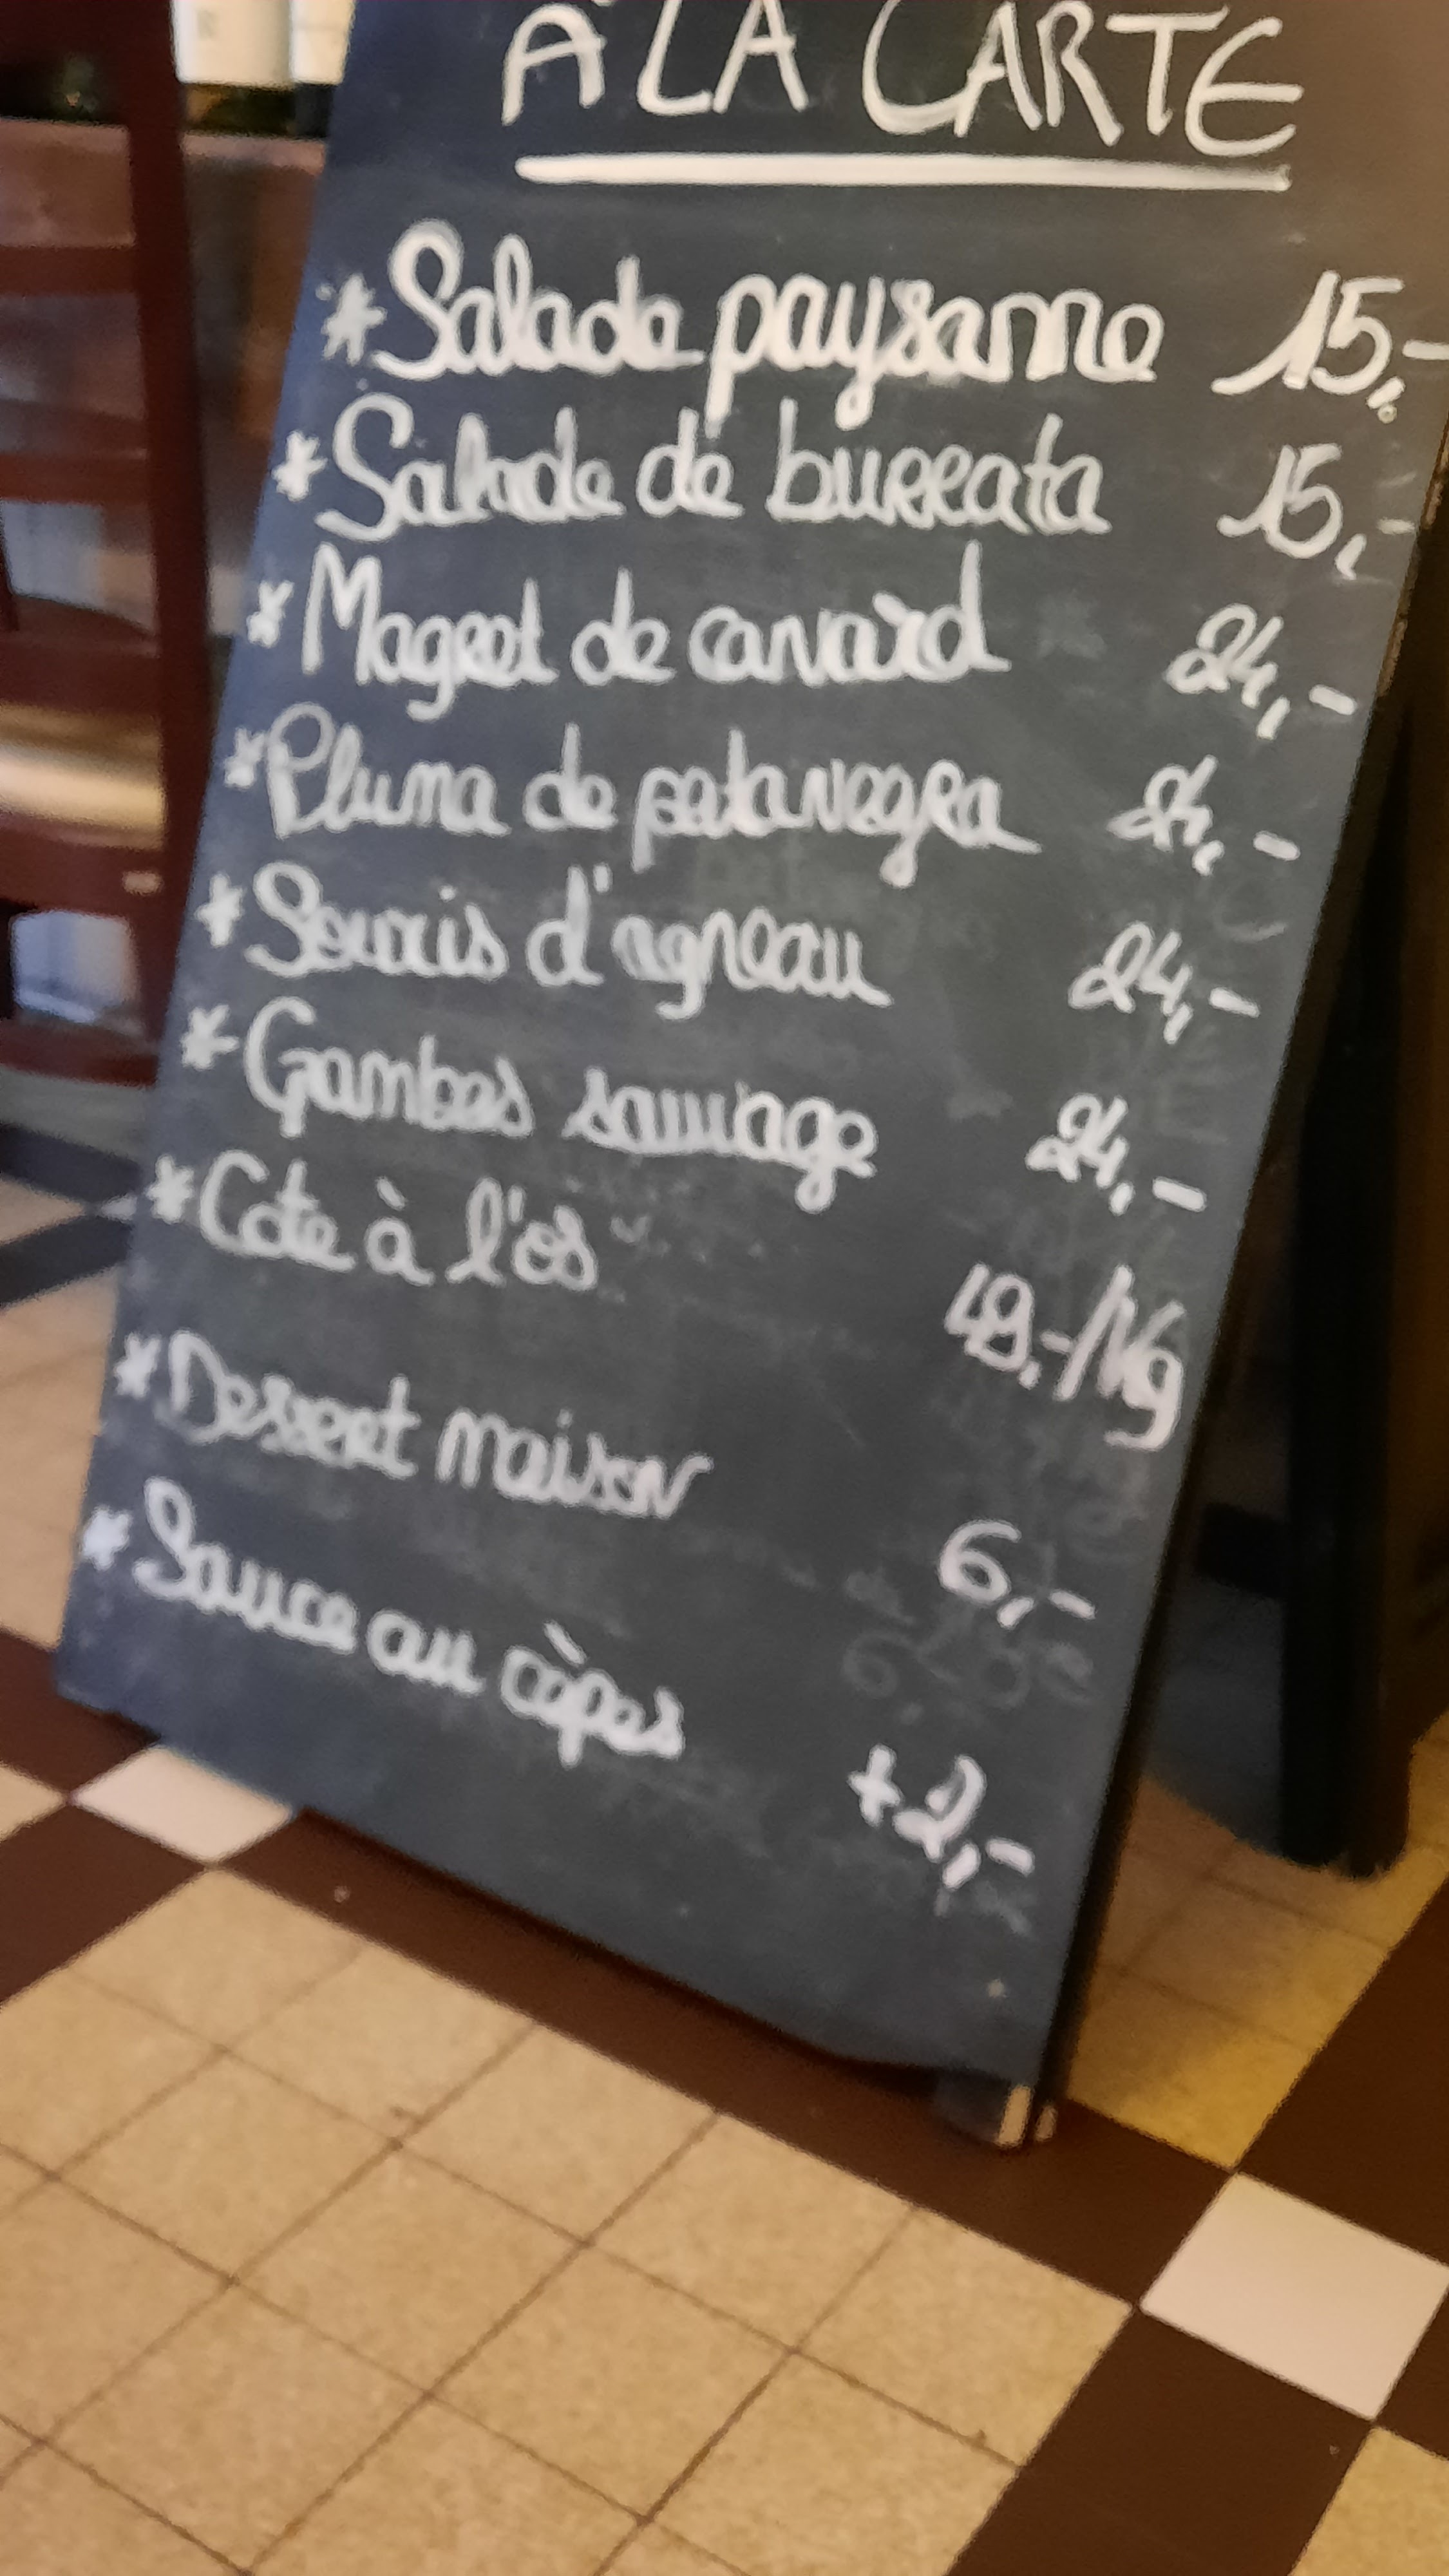 À LA CARTE
* Salade paysanne 15,-
* Salade de burrata 15,-
* Magret de canard 24,-
* Pluma de patanegra 24,-
* Souris d'agneau 24,-
* Gambas sauvage 24,-
* Cote à l'os 49,-/Kg
* Dessert maison 6,-
* Sauce au cèpes +2,-